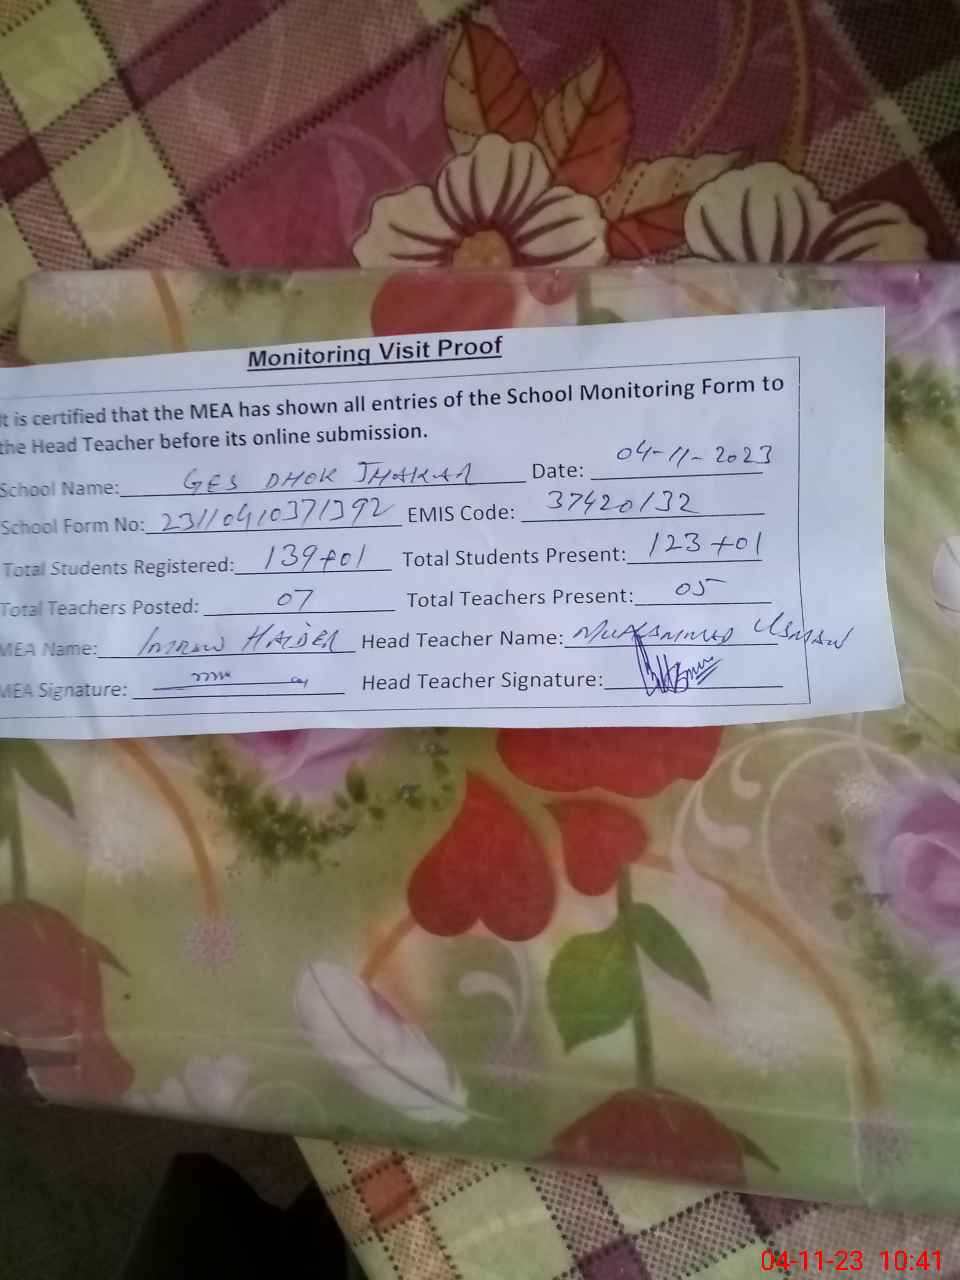 Monitoring Visit Proof
It is certified that the MEA has shown all entries of the School Monitoring Form to
the Head Teacher before its online submission.
School Name: GES DHOK Date: 04-11-2023
School Form No: 23110410371392 EMIS Code: 37420132
Total Students Registered: 139+01 Total Students Present: 123+01
Total Teachers Posted: 07 Total Teachers Present: 05
MEA Name: IMRAN HAIDER Head Teacher Name: MUHAMMAD USMAN
MEA Signature: Head Teacher Signature:
04-11-23 10:41